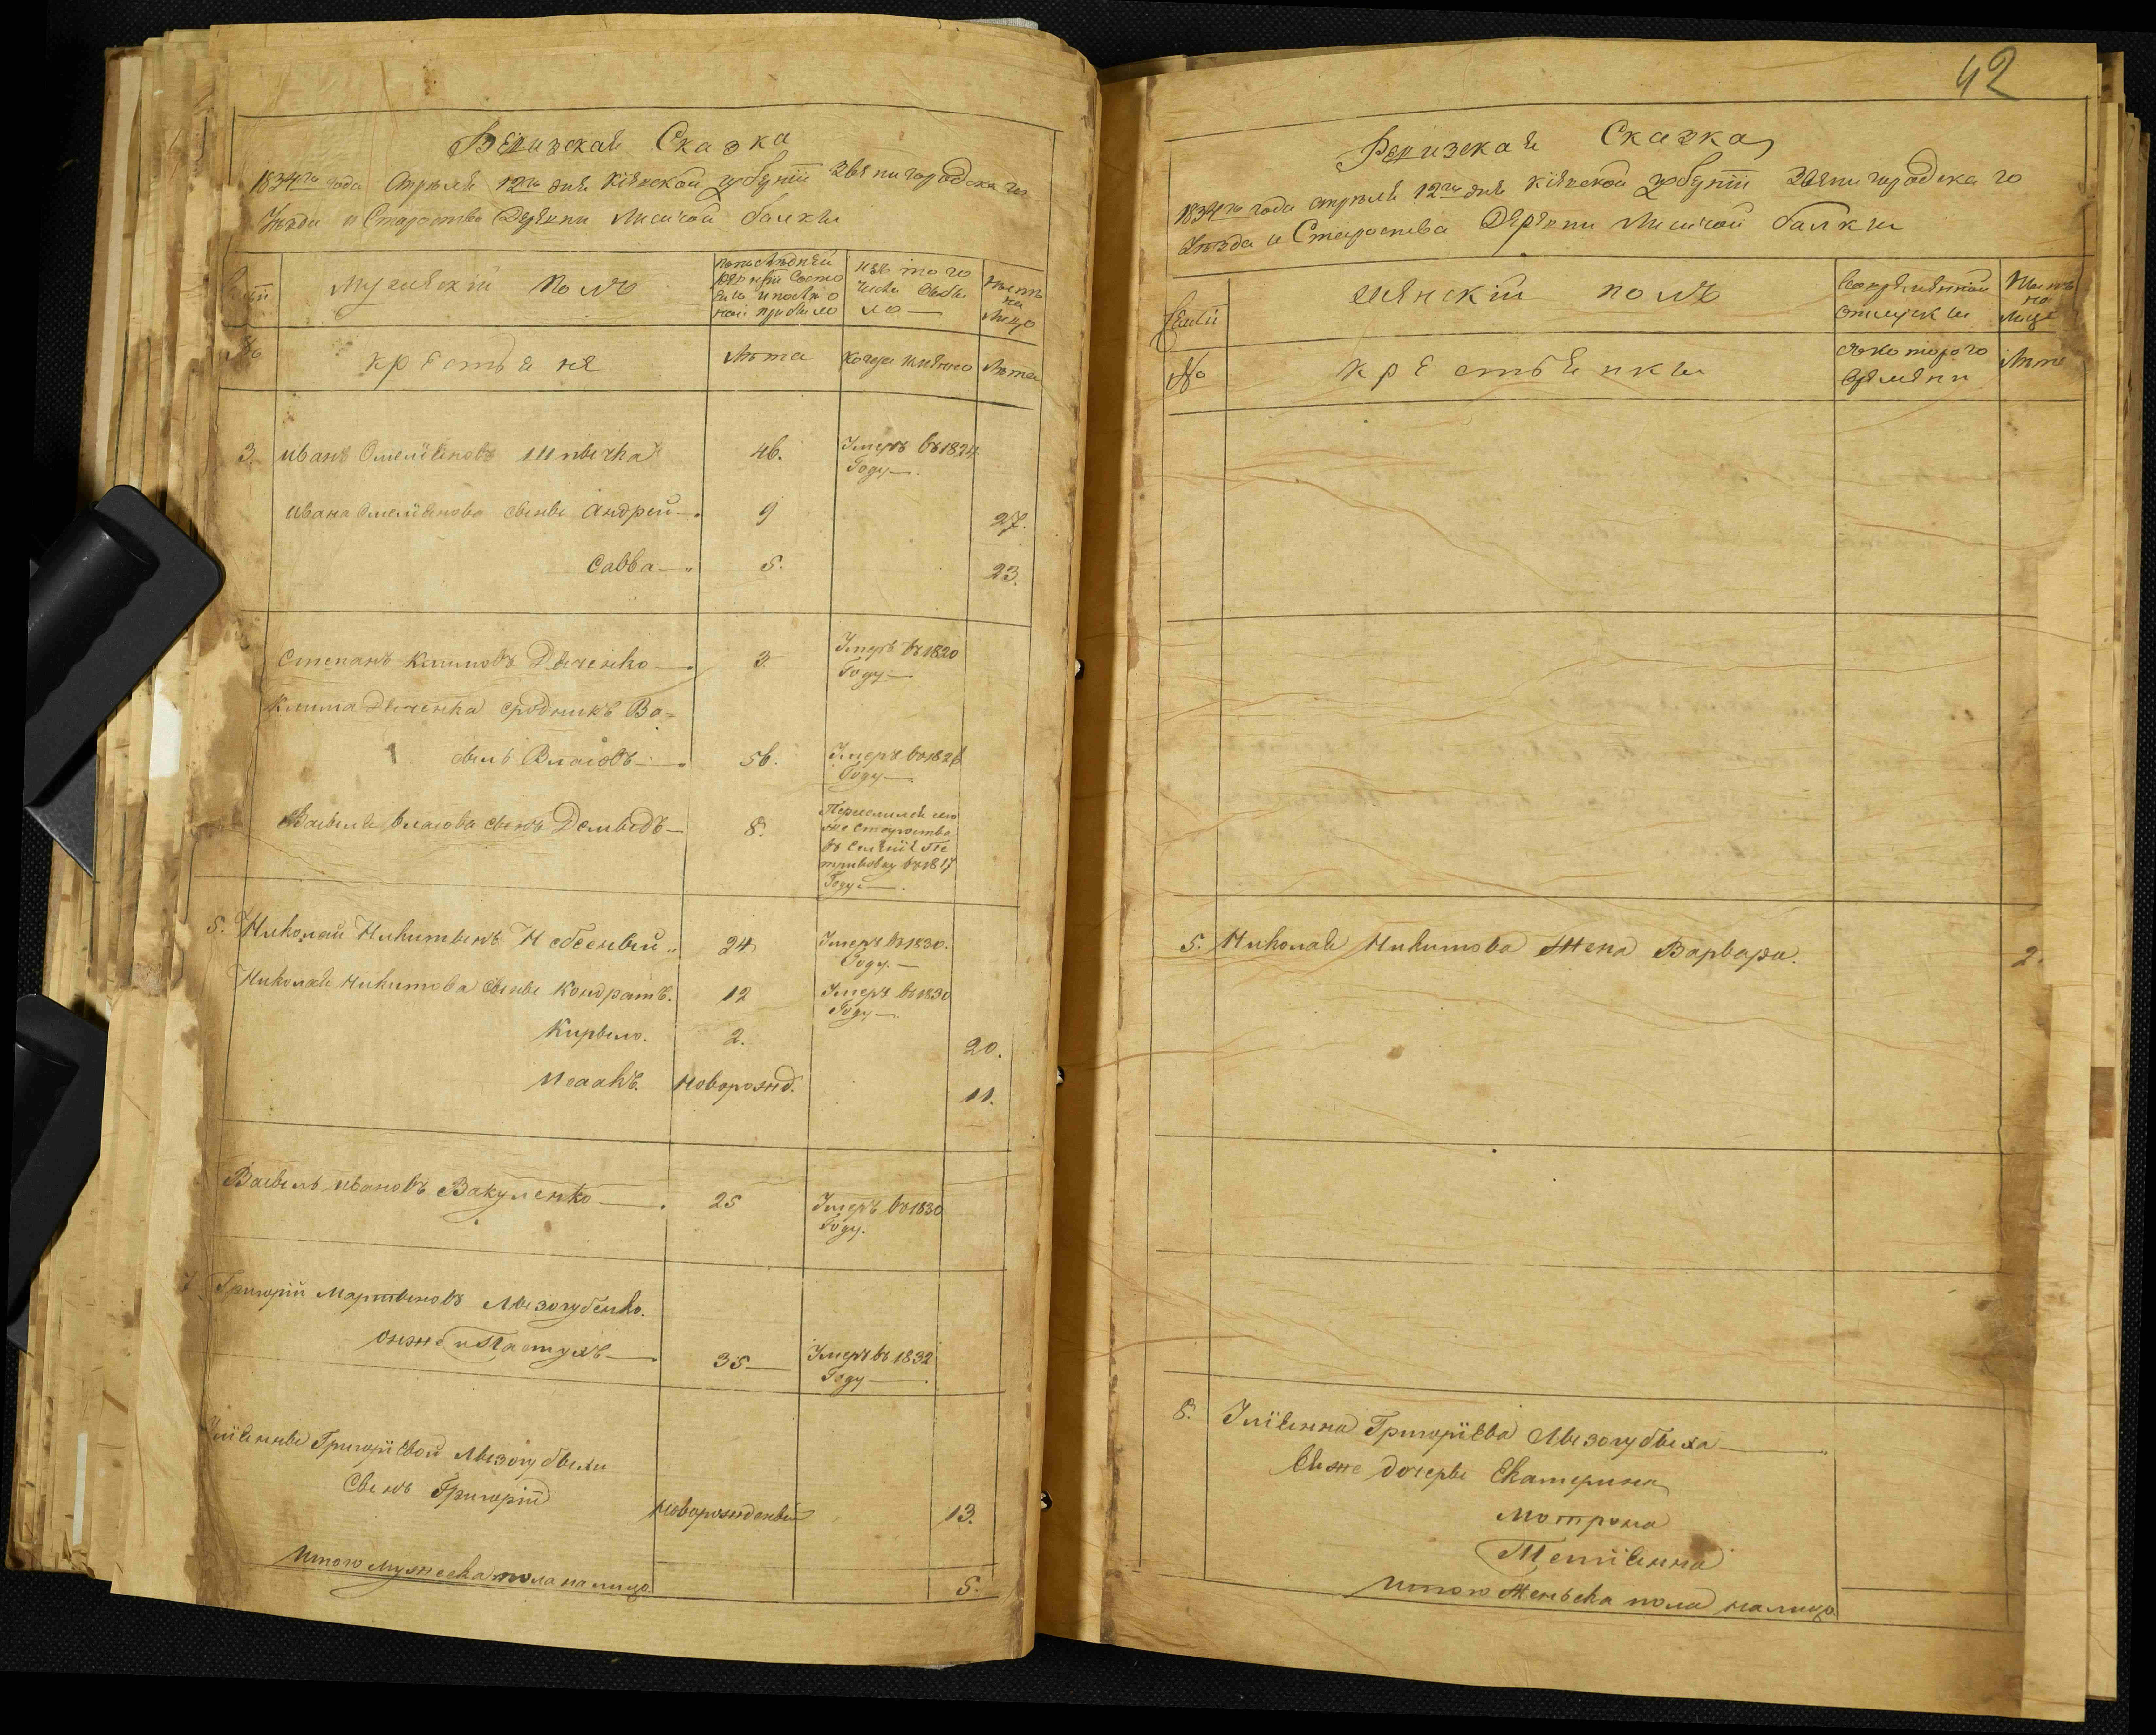 Ревизская Сказка
1834го года апреля 12го дня Кіевской губерніи Звенигородскаго
Уезда и Староства Деревни Лисичой балки
Семьи
Мужескій Полъ
попоследней ревизіи Состояло и после оной прибыло
изъ того числа выбыло
Ныне на Лицо
№
крестьяне
Лета
когда имянно
Лета
3. иванъ Омеляновъ Шпычка 46. Умеръ въ 1824
Году
ивана Омелянова сыны андрей 9 27.
савва 5. 23.
Степанъ Климовъ Дяченко 3. Умеръ въ 1820
Году
Клима Дяченка сродникъ Ва=
сыль Власовъ 56. Умеръ въ 1826
Году
Васыля власова сынъ Демыдъ 8. Переселился сего
же староства
въ
въ 1817
Году
5. Николай Никитынъ 24 Умеръ въ 1830.
Году.
Николая Никитова сыны Кондратъ. 12 Умеръ въ 1830
Году
Кирыло. 2. 20.
Исаакъ. Новорожд. 11.
Васыль ивановъ Вакуленко 25 Умеръ въ 1830
Году.
7. Григорій Мартыновъ Лызогубенко.
онже и Пастухъ 35 Умеръ въ 1832
Году
Уліянны Григоріевой Лызогубыхи
Сынъ Григорій Новорожденный 13.
Итого мужеска пола налицо. 5.
42
Ревизская Сказка
1834го года апреля 12го дня Кіевской губерніи Звенигородскаго
Уезда и Староства Деревни Лисичой балки
Семьи
женскій полъ
Вовременной отлучки
Ныне на лицо
№
крестьянки
съкоторого времени
Лета
5. Николая Никитова Жена Варвара. 2
8. Уліянна Григоріева Лызогубыха
Еяже дочеры Екатерина
Мотрона
Тетіянна
Итого Женьска пола налицо